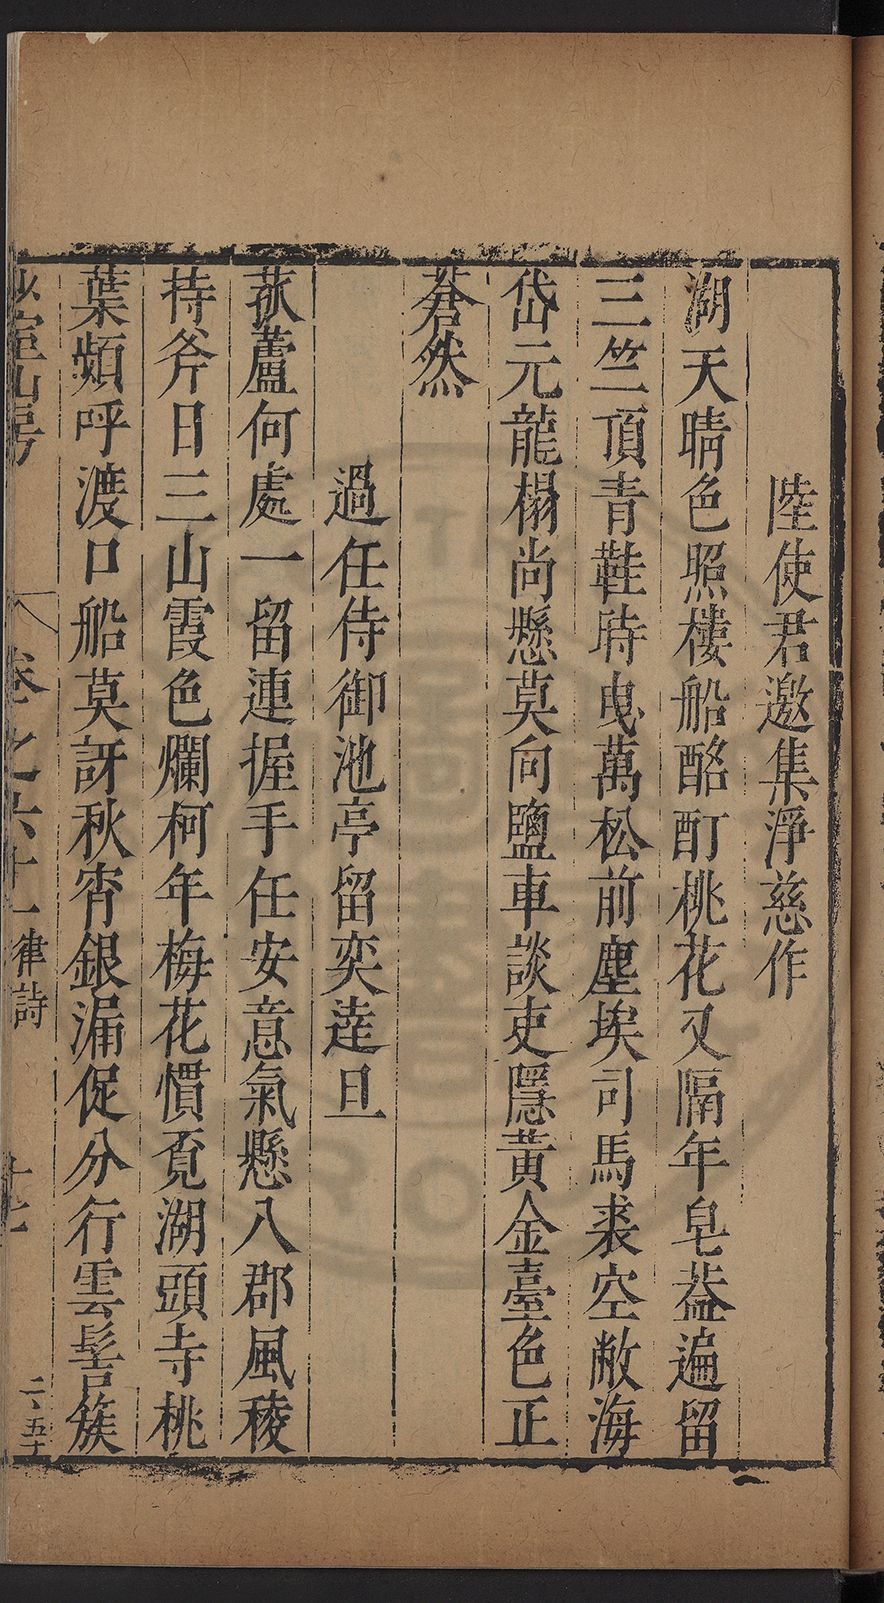 陸使君邀集淨慈作
湖天晴色照樓船酩酊桃花又隔年皂葢遍留
三竺頂青鞋時曳萬松前塵埃司馬裘空敝海
岱元龍榻尚懸莫向鹽車談吏隱黃金臺色正
蒼然
過任侍御池亭留奕達旦
菰蘆何處一留連握手任安意氣懸八郡風稜
持斧日三山霞色爛柯年梅花慣覔湖頭寺桃
葉頻呼渡口船莫訝秋宵銀漏促分行雲髻簇
少室山房
卷之六十一
律詩
十七
二、五十